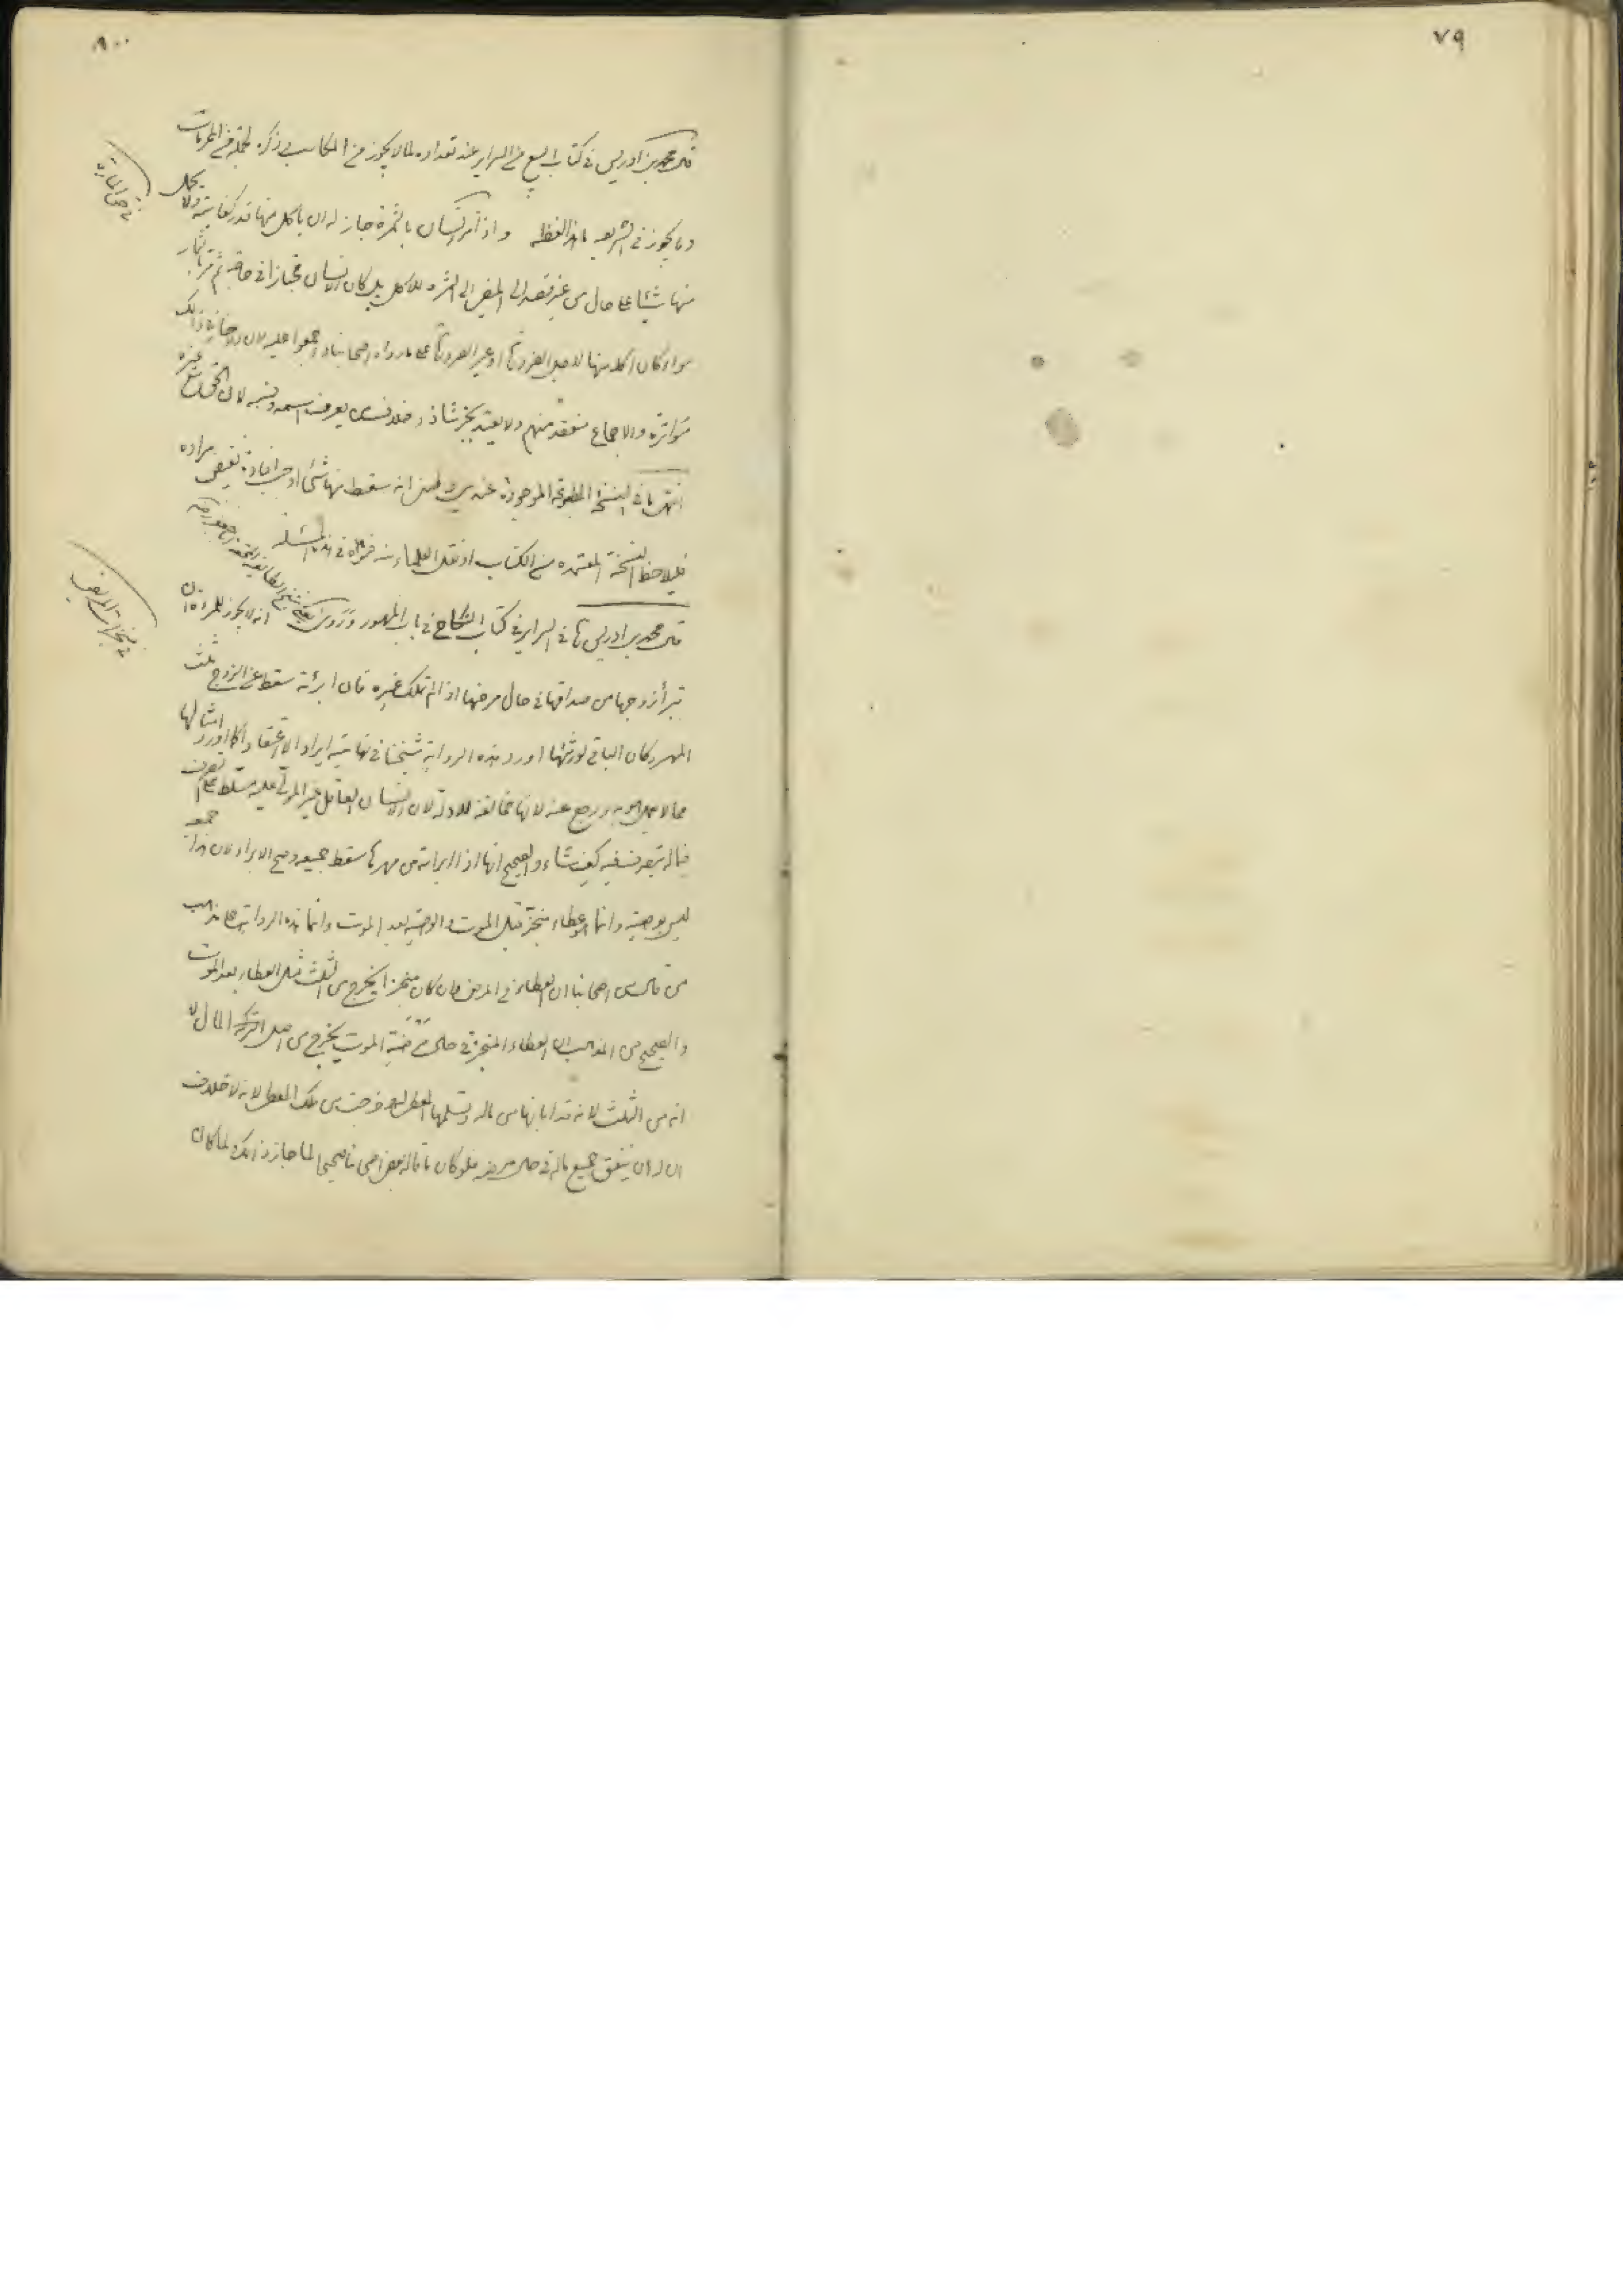 ٧٩
٨٠
في حق المارة
قال محمد بن ادريس في كتاب البيع من السراير عند تعداده لما لا يجوز من المكاسب في ذكر جملة من المحرمات
وما يجوز في الشريعة ما هذا لفظه واذا مر الانسان بالثمرة جاز له ان ياكل منها قدر كفايته ولا يحمل
منها شيئا على حال من غير قصد الى المضي الى الثمرة للاكل بل كان الانسان مجتازا في حاجة ثم مر بالثمار
سواء كان اكله منها لاجل الضرورة او غير الضرورة على ما رواه اصحابنا واجمعوا عليه لان الاخبار في ذلك
متواترة والاجماع منعقد منهم ولا يعتد بخبر شاذ او خلاف من يعرف اسمه ونسبه لان الحق مع غيره
انتهى ما في النسخة المطبوعة الموجودة عندي واظن انه سقط منها شئ اوجب افادة نقيض مراده
فليلاحظ النسخة المعتمدة من الكتاب او نقل العلماء منه في هذه المسئلة
في منجزات المريض
قال محمد بن ادريس في السراير في كتاب النكاح في باب المهور وروى انه لا يجوز للمراة ان
تبرأ زوجها من صداقها في حال مرضها اذا لم تملك غيره فان ابرئته سقط عن الزوج ثلث
المهر وكان الباقي لورثتها اورد هذه الرواية شيخنا في نهايته ايرادا لا اعتقادا كما اورد امثالها
مما لا يعمل به ورجع عنه لانها مخالفة للادلة لان الانسان العاقل غير المولى عليه مسلط على
ماله يتصرف فيه كيف شاء والصحيح انها اذا ابرأته من مهرها سقط جميعه وصح الابراء لان هذا
ليس بوصية وانما هو عطاء منجز قبل الموت والوصية بعد الموت وانما هذه الرواية على مذهب
من قال من اصحابنا ان العطاء في المرض وان كان منجزا يخرج من الثلث مثل العطاء بعد الموت
والصحيح من المذهب ان العطاء المنجز في حال مرضه الموت يخرج من اصل التركة المال لا
انه من الثلث لانه قد ابانها من ماله وتسلمها المعطى له وخرجت من ملك المعطي لانه لا خلاف
ان له ان ينفق جميع ماله في حال مرضه فلو كان ما قاله بعض اصحابنا صحيحا لما جاز ذلك ولما كان